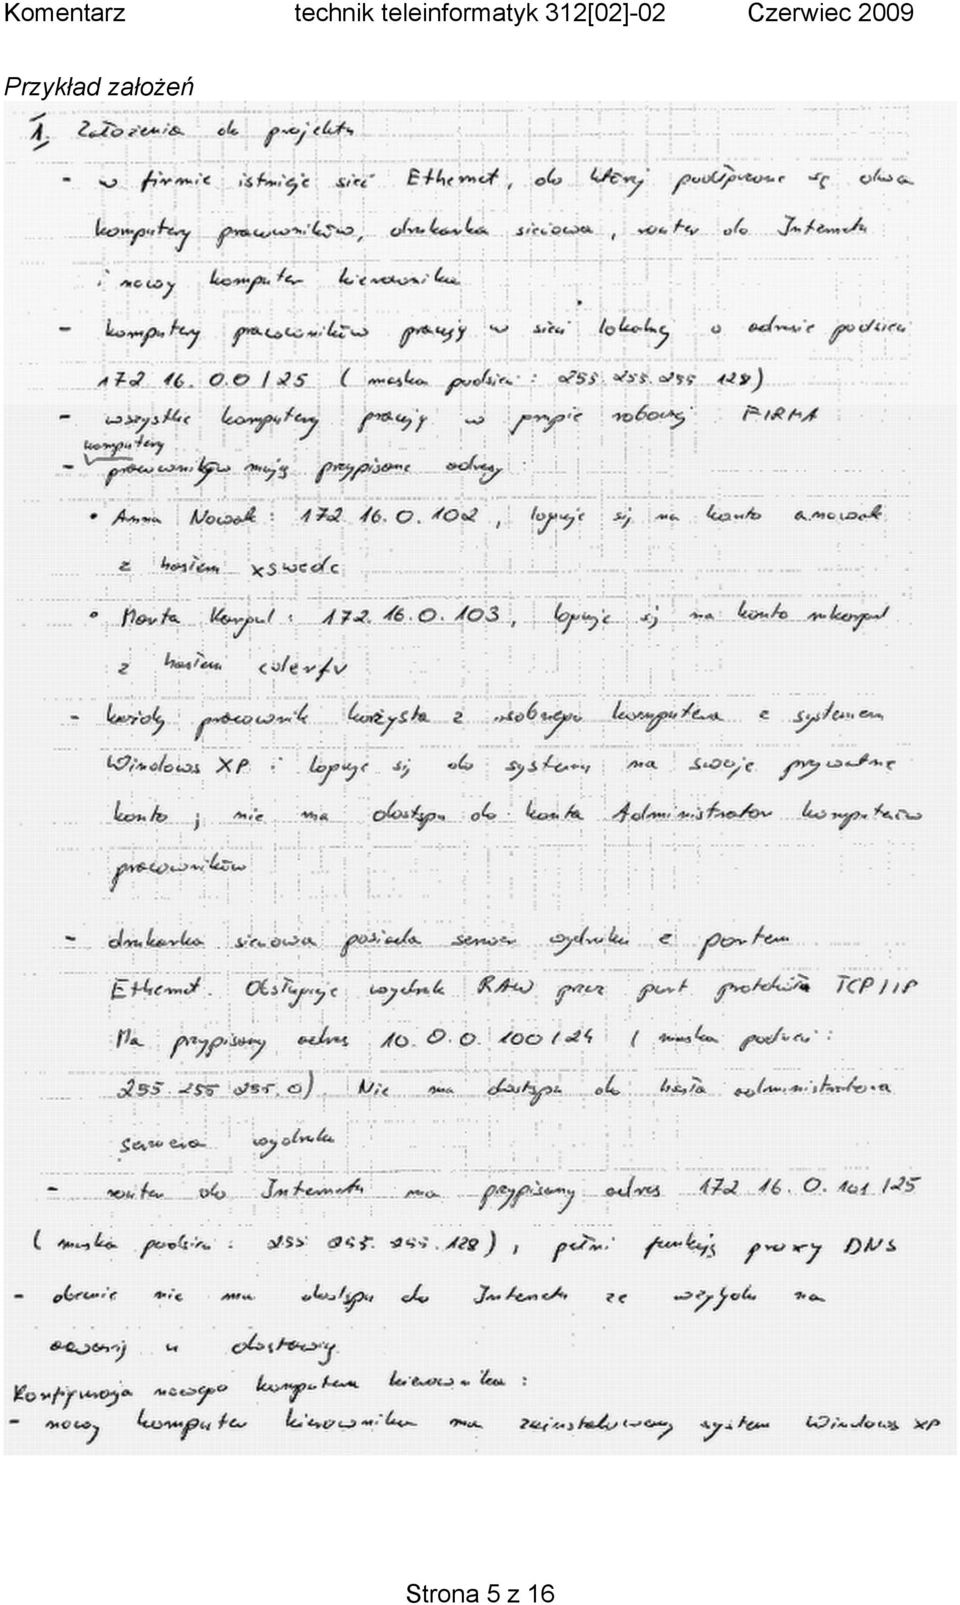 Komentarz technik teleinformatyk 312[02]-02 Czerwiec 2009
Przykład założeń
1. Założenia do projektu
- w firmie istnieje sieć Ethernet, do której podłączone są dwa
komputery pracowników, drukarka sieciowa, router do Internetu
i nowy komputer kierownika
- komputery pracowników pracują w sieci lokalnej o adresie podsieci
172.16.0.0/25 (maska podsieci: 255.255.255.128)
- wszystkie komputery pracują w grupie roboczej FIRMA
komputery
- pracowników mają przypisane adresy:
• Anna Nowak: 172.16.0.102, loguje się na konto anowak
z hasłem xswedc
• Marta Karpul: 172.16.0.103, loguje się na konto
z hasłem
- każdy pracownik korzysta z osobnego komputera z systemem
Windows XP i loguje się do systemu na swoje prywatne
konto; nie ma dostępu do konta Administrator komputerów
pracowników
- drukarka sieciowa posiada serwer wydruku z portem
Ethernet. Obsługuje wydruk RAW przez port protokołu TCP/IP
Ma przypisany adres 10.0.0.100/24 (maska podsieci:
255.255.255.0). Nie ma dostępu do hasła administratora
serwera wydruku
- router do Internetu ma przypisany adres 172.16.0.101/25
(maska podsieci: 255.255.255.128), pełni funkcję proxy DNS
- obecnie nie ma dostępu do Internetu ze względu na
awarię u dostawcy
Konfiguracja nowego komputera kierownika:
- nowy komputer kierownika ma zainstalowany system Windows XP
Strona 5 z 16